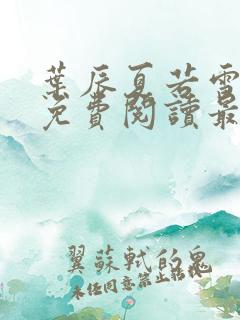 葉辰夏若雪
免費閱讀最
翼蘇軾的鬼
未任同意禁止轉載